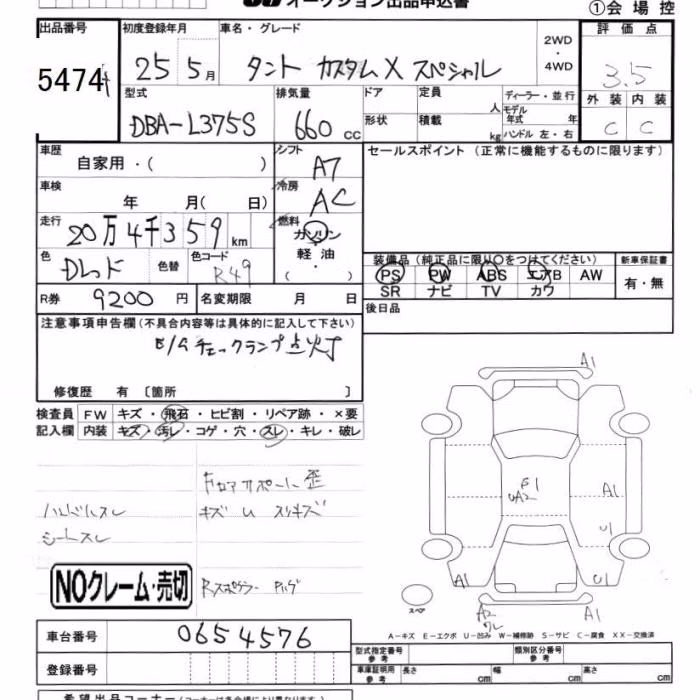 オークション出品申込書
①会場控
出品番号 初度登録年月 車名・グレード 2WD・4WD 評価点
5474 25 5月 タント カスタムX スペシャル 3.5
型式 排気量 ドア 定員 人 ディーラー・並行 外装 内装
DBA-L375S 660cc 形状 積載 kg モデル年式 年 ハンドル 左・右 C C
車歴 自家用・( ) シフト AT セールスポイント (正常に機能するものに限ります)
車検 年 月( 日) 冷房 AC
走行 20万4千359km 燃料 ガソリン・軽油・( )
色 Dレッド 色替 色コード R49 装備品 (純正品に限り○をつけてください) 新車保証書
PS PW ABS エアB AW 有・無
SR ナビ TV カワ
R券 9200円 名変期限 月 日 後日品
注意事項申告欄 (不具合内容等は具体的に記入して下さい)
E/Gチェックランプ点灯
修復歴 有 〔箇所 〕
検査員 FW キズ・飛石・ヒビ割・リペア跡・×要
記入欄 内装 キズ・汚レ・コゲ・穴・スレ・キレ・破レ
ハンドルスレ
シートスレ
キズ U スリキズ
Rスポイラー
NOクレーム・売切
A1
A1
U1
A1
U1
A2
A1
スペア
A-キズ E-エクボ U-凹み W-補修跡 S-サビ C-腐食 XX-交換済
車台番号 0654576
登録番号
型式指定番号 参考 類別区分番号 参考
車庫証明用 参考 長さ cm 幅 cm 高さ cm
希望出品コーナー